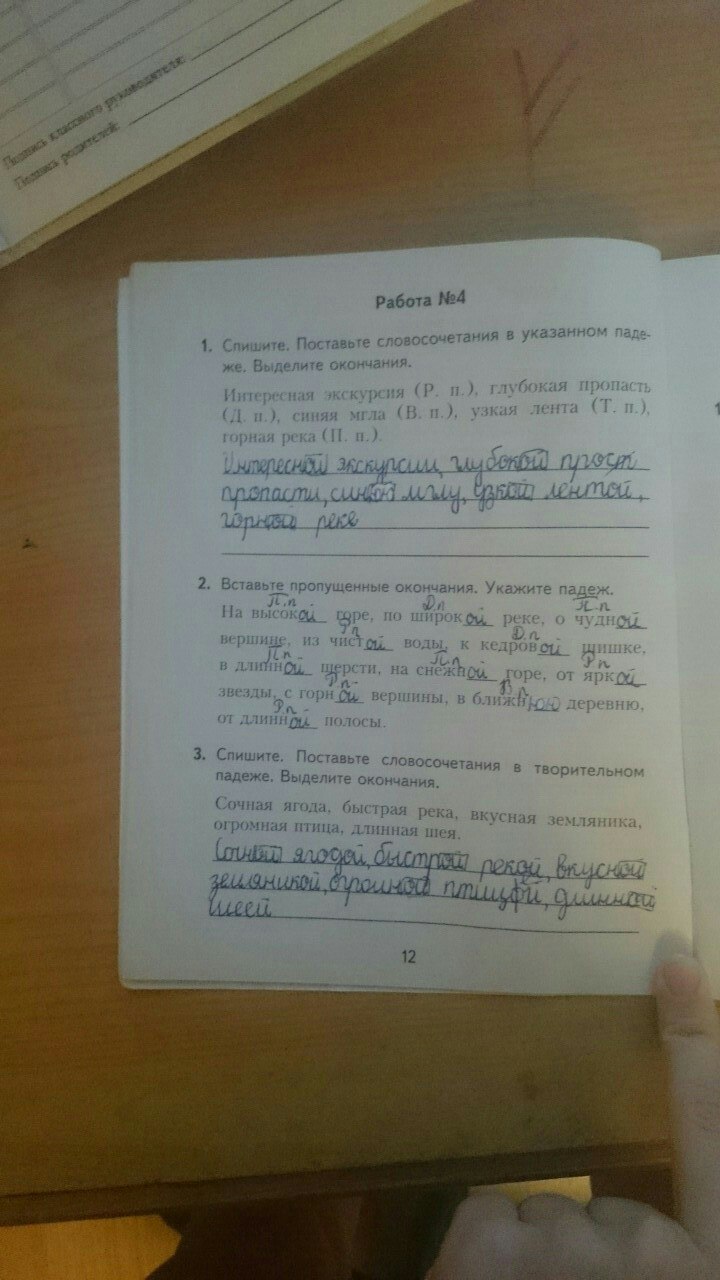 Подпись классного руководителя:
Подпись родителей:
Работа №4
1. Спишите. Поставьте словосочетания в указанном паде-
же. Выделите окончания.
Интересная экскурсия (Р. п.), глубокая пропасть
(Д. п.), синяя мгла (В. п.), узкая лента (Т. п.),
горная река (П. п.).
Интересной экскурсии, глубокой
пропасти, мглу, узкой лентой,
горной реке
2. Вставьте пропущенные окончания. Укажите падеж.
П.п Д.п П.п
На высокой горе, по широкой реке, о чудной
Рп Д.п
вершине, из чистой воды, к кедровой шишке,
Пп П.п Рп
в длинной шерсти, на снежной горе, от яркой
В п
звезды, с горной вершины, в ближнюю деревню,
Рп
от длинной полосы.
3. Спишите. Поставьте словосочетания в творительном
падеже. Выделите окончания.
Сочная ягода, быстрая река, вкусная земляника,
огромная птица, длинная шея.
Сочной ягодой, быстрой рекой, вкусной
земляникой, огромной длинной
шеей
12